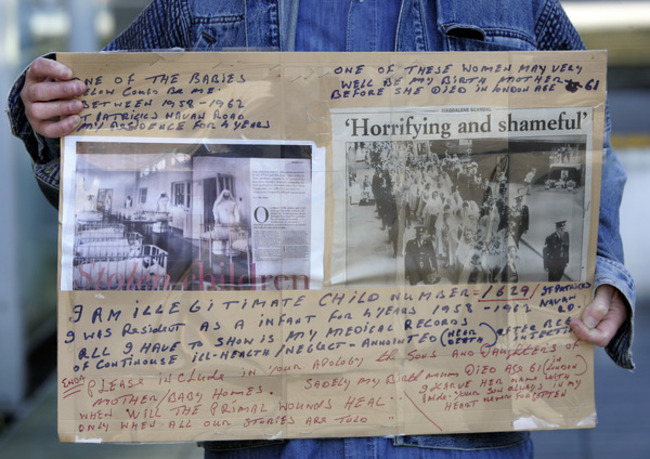 ONE OF THE BABIES
BELOW COULD BE ME.
BETWEEN 1958-1962
ST PATRICKS NAVAN ROAD
MY RESIDENCE FOR 4 YEARS
ONE OF THESE WOMEN MAY VERY
WELL BE MY BIRTH MOTHER
BEFORE SHE DIED IN LONDON AGE 61
MAGDALENE SCANDAL
'Horrifying and shameful'
O
Stolen children
I AM ILLEGITIMATE CHILD NUMBER = 1629/ ST PATRICKS
NAVAN RD.
I WAS RESIDENT AS A INFANT FOR 4 YEARS 1958-1962
ALL I HAVE TO SHOW IS MY MEDICAL RECORDS
OF CONTINOUSE ILL-HEALTH/NEGLECT-ANNOINTED (NEAR DEATH) AFTER
INFECTION
ENDA PLEASE INCLUDE IN YOUR APOLOGY the SONS AND DAUGHTERS OF
MOTHER/BABY HOMES. SADELY MY Birth DIED AGE 61 (in LONDON
WHEN WILL THE PRIMAL WOUNDS HEAL..
ONLY WHEN ALL OUR STORIES ARE TOLD
HER NAME WITH
Pride. your SON ALWAYS IN MY
HEART NEVER FORGOTTEN